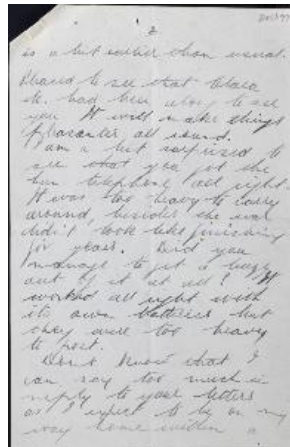 2
is a bit earlier than usual.
Pleased to see that Clara
had been along to see
you It will make things
pleasanter all round.
I am a bit surprised to
see that you got the
telephone all right.
It was too heavy to carry
around, besides the war
didn't look like finishing
for years. Did you
manage to get a buzz
out of it at all? It
worked all right with
its own batteries but
they were too heavy
to post.
Don't know that I
can say too much in
reply to your letters
as I expect to be on my
way home within a